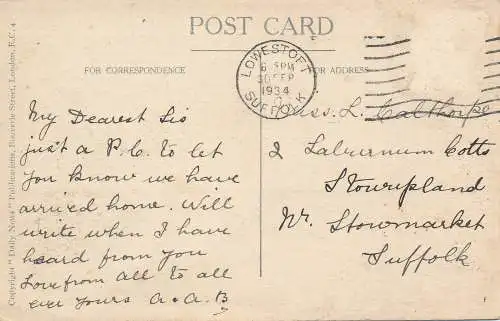 POST CARD
FOR CORRESPONDENCE
FOR ADDRESS
LOWESTOFT
6 PM
30 SEP
1934
SUFFOLK
My Dearest Sis
just a P.C. to let
you know we have
arrived home. Will
write when I have
heard from you
Love from all to all
ever yours a.a.B
Miss. L. Calthorpe
2 Laburnum Cotts
Stowupland
Nr. Stowmarket
Suffolk
Copyright "Daily News" Publications, Bouverie Street, London, E.C.4